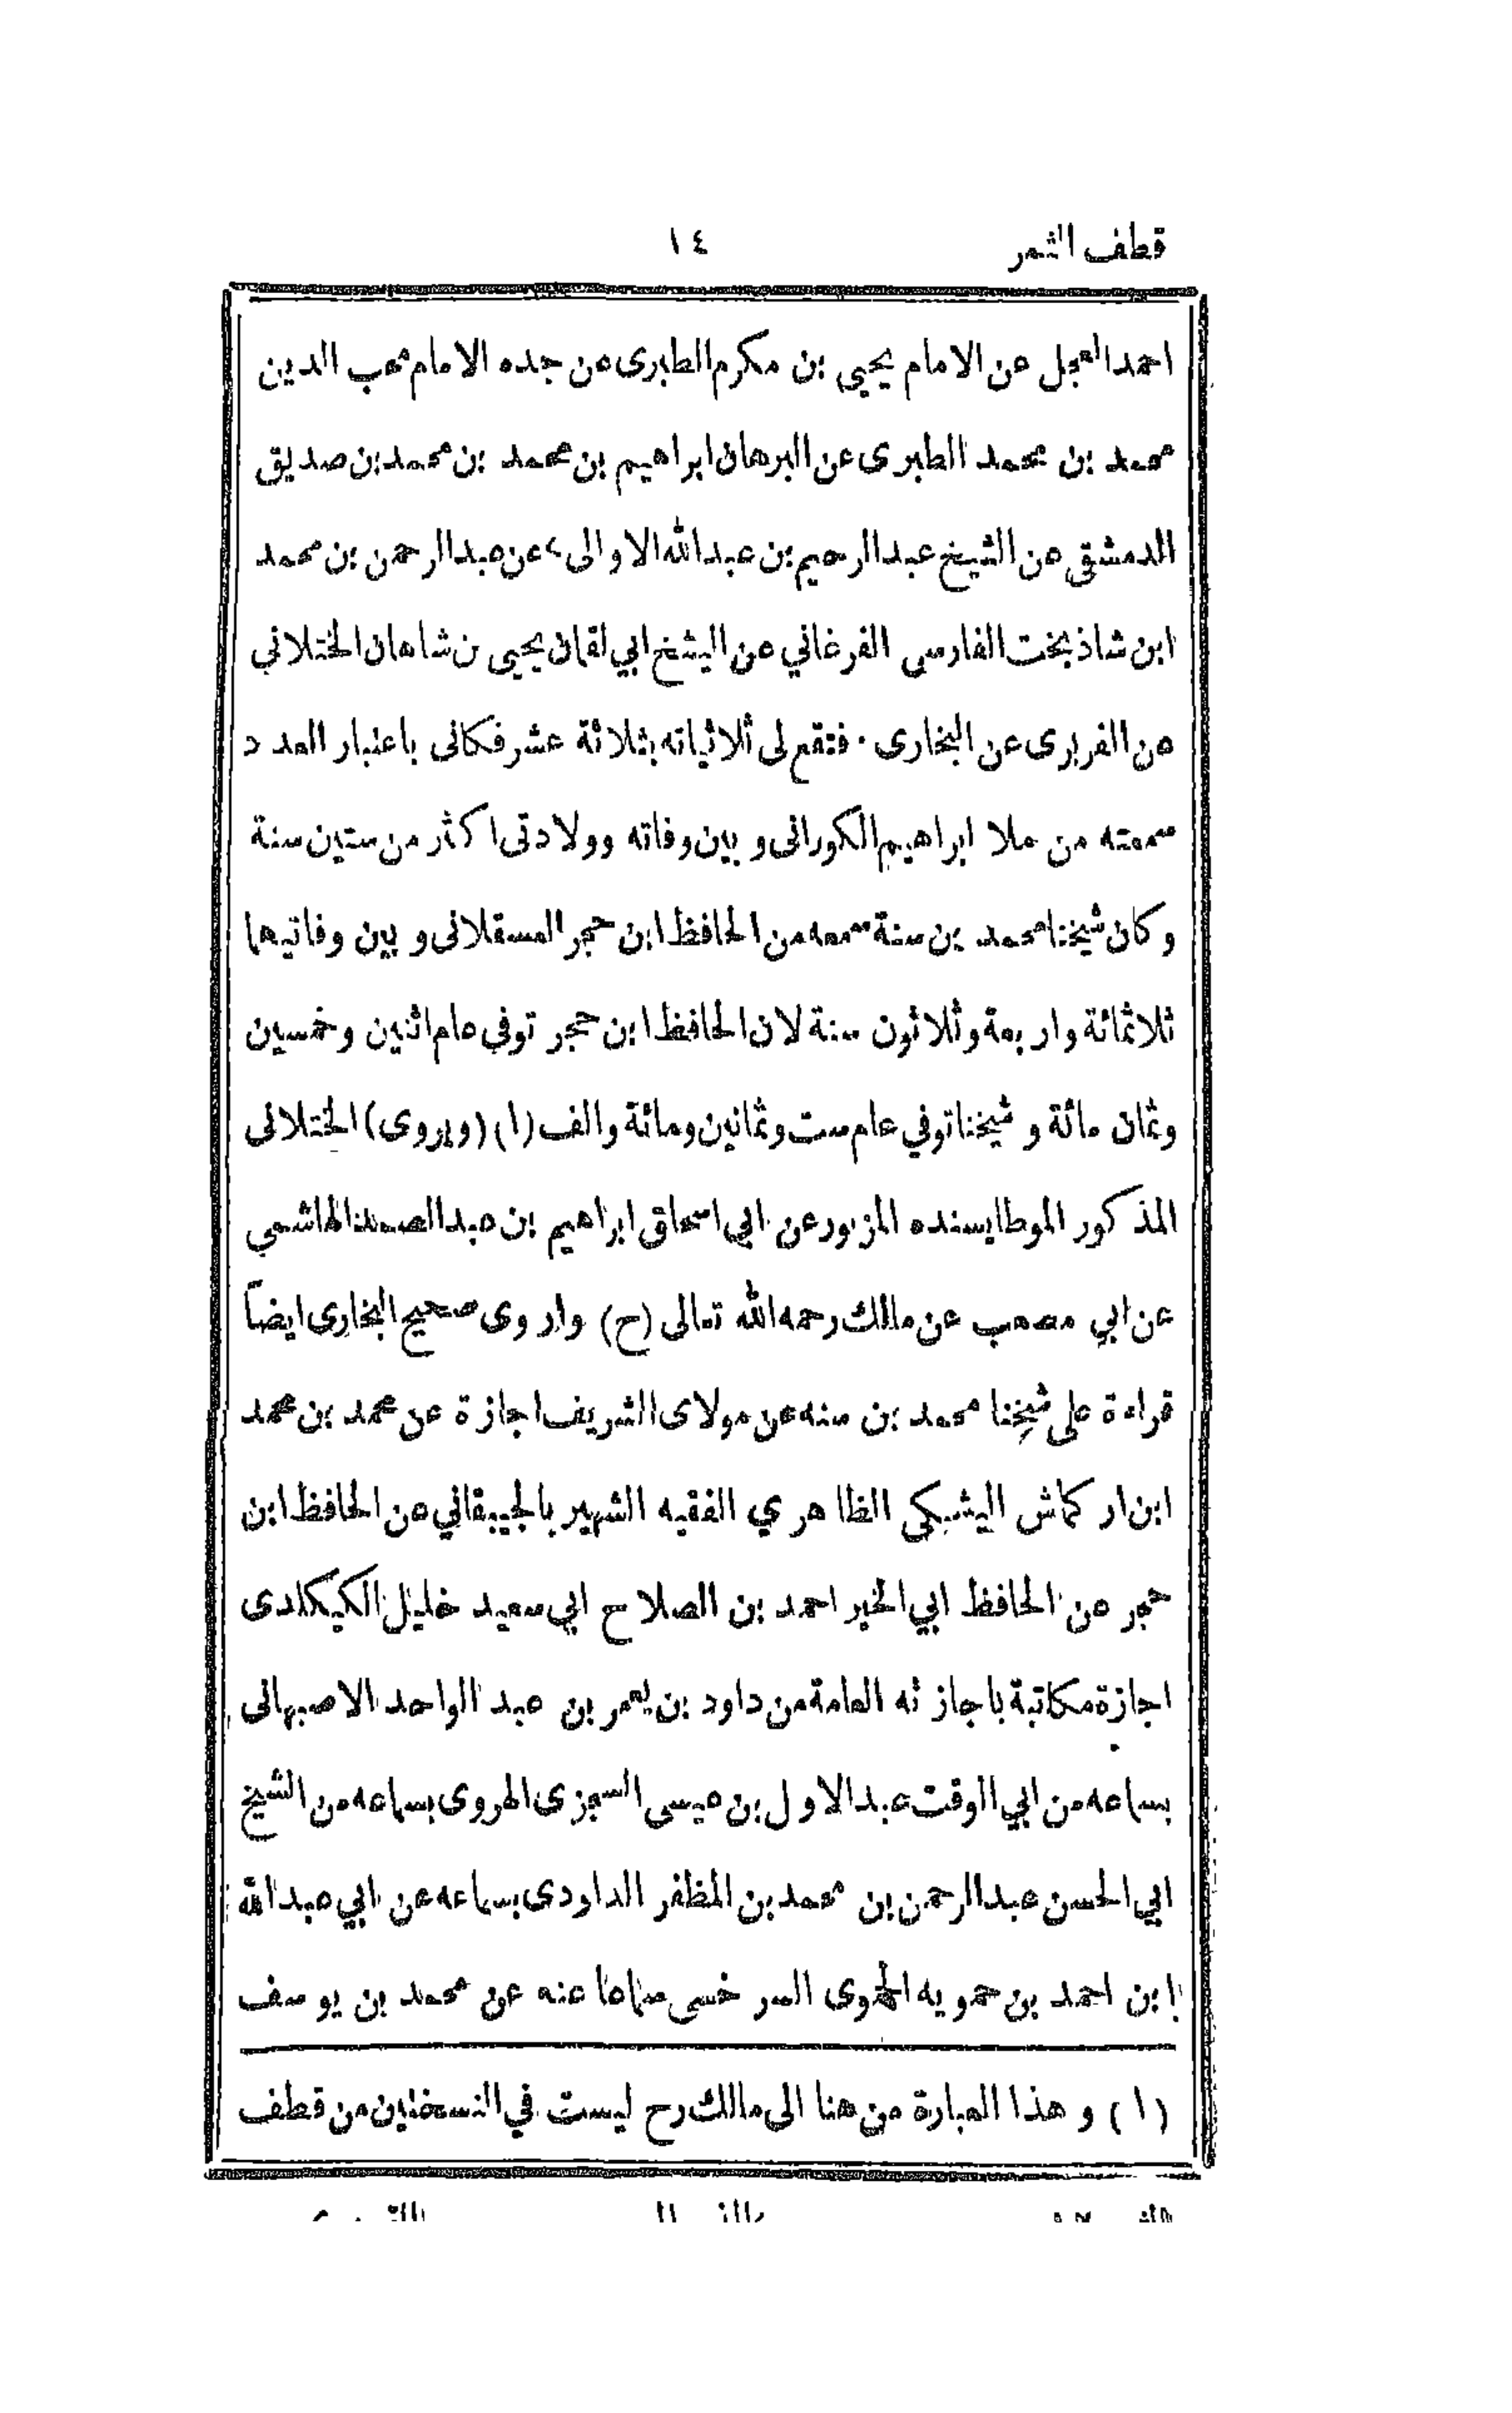 قطف الثمر ١٤
احمد العجل عن الامام يحيى بن مكرم الطبرى عن جده الامام محب الدين
محمد بن محمد الطبرى عن البرهان ابراهيم بن محمد بن محمد بن صديق
الدمشقى عن الشيخ عبد الرحيم بن عبد الله الاوالى عن عبد الرحمن بن محمد
ابن شاذ بخت الفارسى الفرغاني عن اليشخ ابي لقمان يحيى ن شاهان الختلاني
عن الفربرى عن البخارى . فتقع لى ثلاثياته بثلاثة عشر فكانى باعتبار العدد
سمعته من ملا ابراهيم الكورانى و بين وفاته وولادتى اكثر من ستين سنة
وكان شيخنا محمد بن سنة سمعه من الحافظ ابن حجر العسقلانى و بين وفاتيهما
ثلاثمائة واربعة وثلاثون سنة لان الحافظ ابن حجر توفي عام اثنين وخمسين
وثمان مائة و شيخنا توفي عام ست وثمانين ومائة والف (١) (ويروى) الختلانى
المذكور الموطا بسنده المزبور عن ابي اسحاق ابراهيم بن عبد الصمد الهاشمي
عن ابي مصعب عن مالك رحمه الله تعالى (ح) واروى صحيح البخارى ايضاً
قراءة على شيخنا محمد بن سنه عن مولاى الشريف اجازة عن محمد بن محمد
ابن اركماش اليشبكى الظاهري الفقيه الشهير بالجيبقاني عن الحافظ ابن
حجر عن الحافظ ابي الخير احمد بن الصلاح ابي سعيد خليل الكيكلدى
اجازة مكاتبة باجازته العامة من داود بن يعمر بن عبد الواحد الاصبهانى
بسماعه من ابي الوقت عبد الاول بن عيسى السجزى الهروى بسماعه من الشيخ
ابي الحسن عبد الرحمن بن محمد بن المظفر الداودى بسماعه عن ابي عبد الله
ابن احمد بن حمويه الحموى السرخسى سماعا عنه عن محمد بن يوسف
(١) و هذا العبارة من هنا الى مالك رح ليست في النسختين من قطف